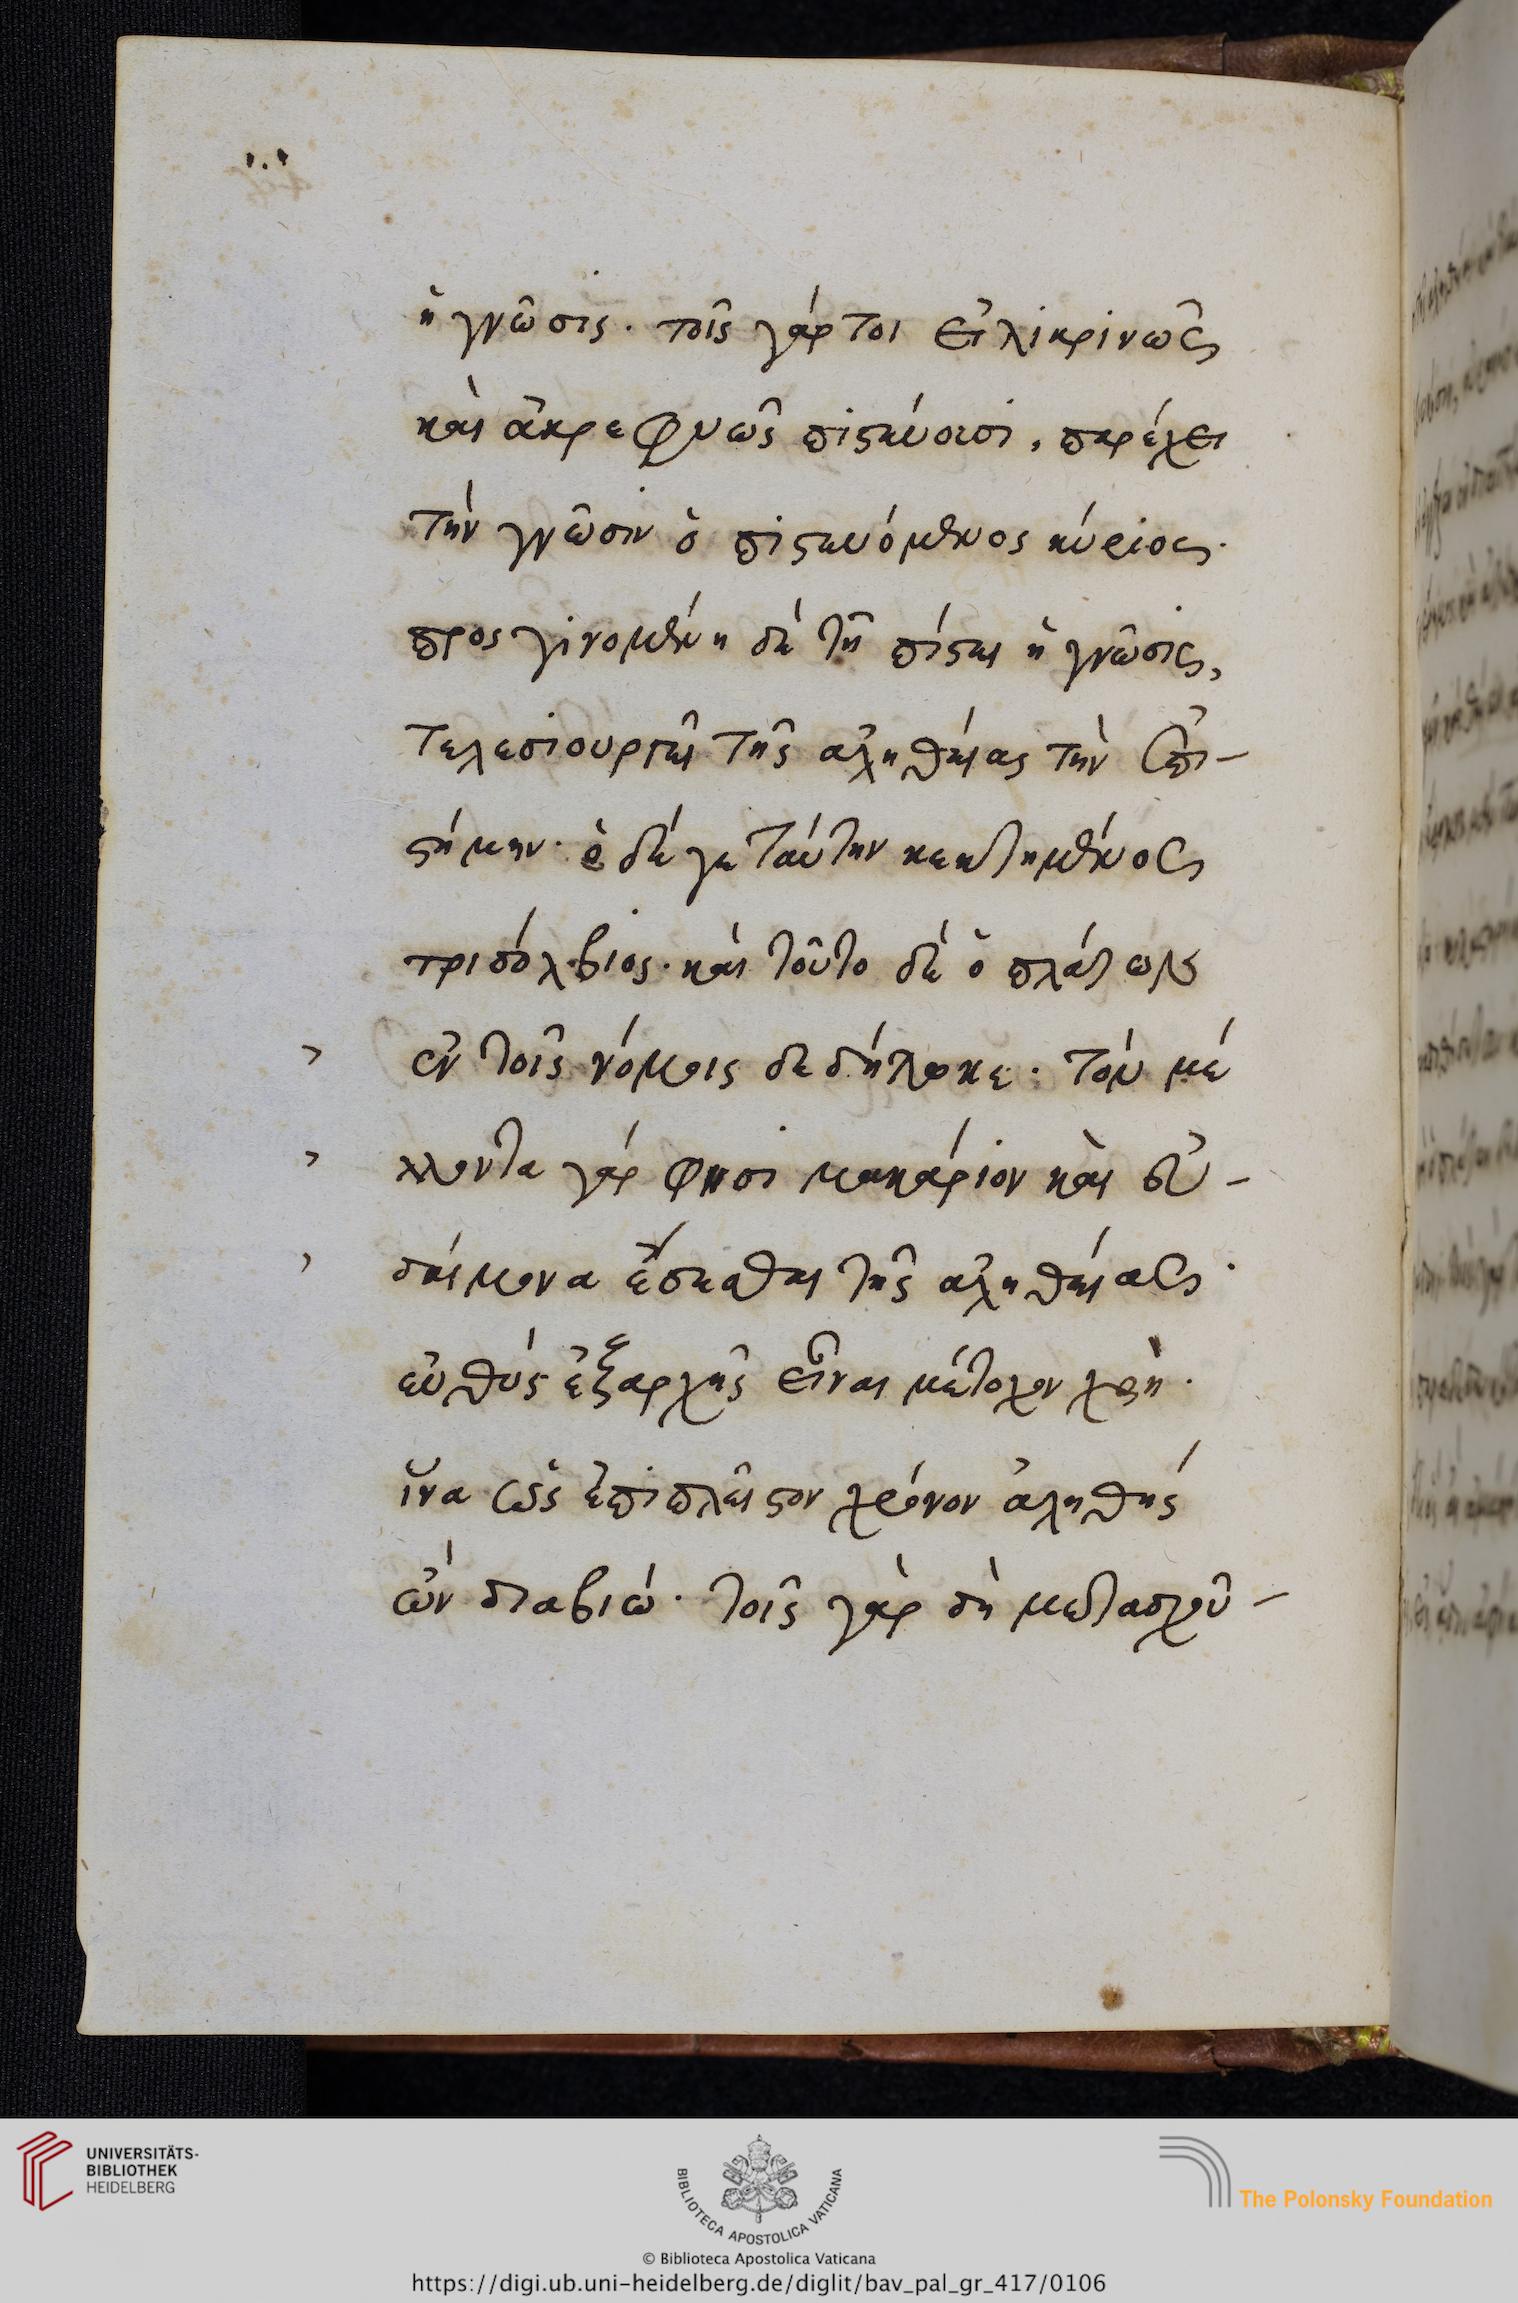 ἡ γνῶσις. τοῖς γάρ τοι εἰλικρινῶς
καὶ ἀκρεφνῶς πιστεύουσι, παρέχει
τὴν γνῶσιν ὁ πιστευόμενος κύριος.
προσγινομένη δὲ τῇ πίστει ἡ γνῶσις,
τελεσιουργεῖ τῆς ἀληθείας τὴν ἐπι-
στήμην. ὁ δέ γε ταύτην κεκτημένος
τρισόλβιος. καὶ τοῦτο δὲ ὁ πλάτων
ἐν τοῖς νόμοις δεδήλωκε. τὸν μέ
λλοντα γάρ φησι μακάριον καὶ εὐ-
δαίμονα ἔσεσθαι τῆς ἀληθείας.
εὐθὺς ἐξαρχῆς εἶναι μέτοχον χρή.
ἵνα ὡς ἐπιπλεῖστον χρόνον ἀληθής
ὢν διαβιῴ. τοῖς γὰρ δὴ μετασχοῦ-
UNIVERSITÄTS-
BIBLIOTHEK
HEIDELBERG
BIBLIOTECA APOSTOLICA VATICANA
The Polonsky Foundation
© Biblioteca Apostolica Vaticana
https://digi.ub.uni-heidelberg.de/diglit/bav_pal_gr_417/0106